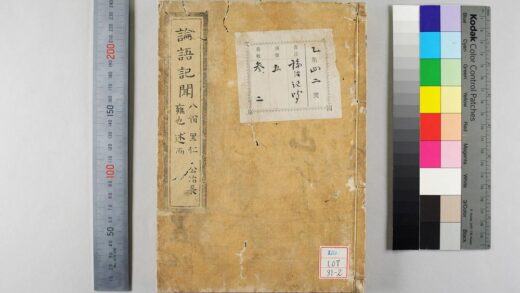 論語記聞
八佾 里仁 公冶長
雍也 述而
乙 第 四二 號
論語記聞
五
参 二
107
31-2
200
150
100
50
Kodak Color Control Patches
Blue
Cyan
Green
Yellow
Red
Magenta
White
3/Color
Black